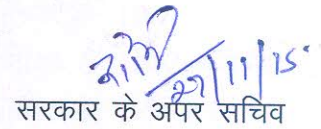 27/11/15
सरकार के अपर सचिव